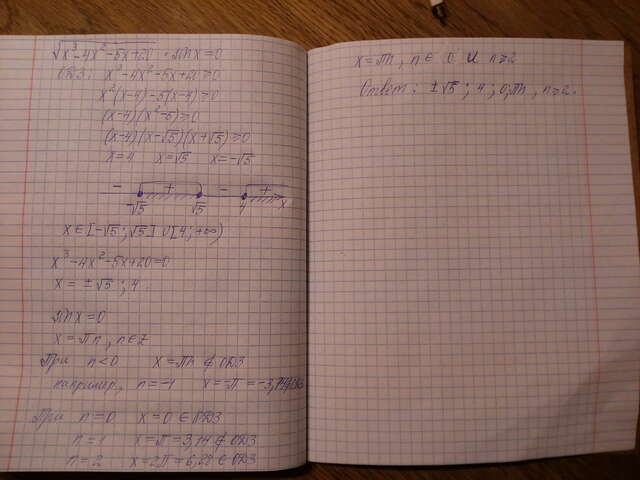 √x³-4x²-5x+20 · sin x = 0
ОДЗ: x³-4x²-5x+20≥0
x²(x-4)-5(x-4)≥0
(x-4)(x²-5)≥0
(x-4)(x-√5)(x+√5)≥0
x=4 x=√5 x=-√5
- + - +
-√5 √5 4 x
x∈[-√5;√5]∪[4;+∞)
x³-4x²-5x+20=0
x = ±√5; 4.
sin x=0
x = πn, n∈Z
При n<0 x=πn ∉ ОДЗ
например, n=-1 x=-π=-3,14∉ОДЗ
При n=0 x=0 ∈ ОДЗ
n=1 x=π=3,14 ∉ ОДЗ
n=2 x=2π=6,28 ∈ ОДЗ
x=πn, n∈ 0 и n≥2
Ответ: ±√5; 4; 0; πn, n≥2.